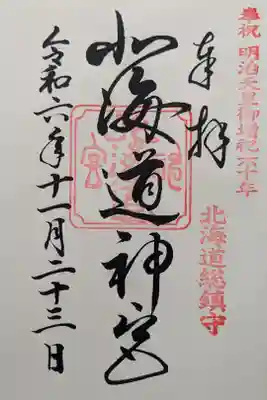 奉祝 明治天皇御増祀六十年
奉拝
北海道総鎮守
北海道神宮
令和六年十一月二十三日